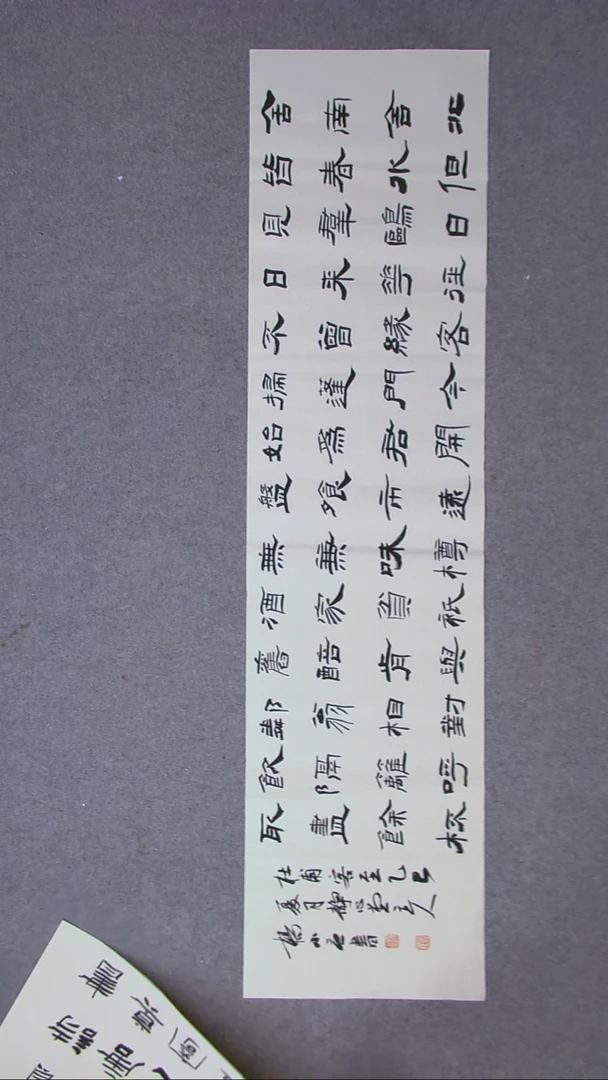 舍南舍北
皆春水但
見羣鷗日
日来華徑
不曾緣客
掃蓬門今
始為君開
盤飧市遠
無兼味樽
酒家貧祇
舊醅肯與
鄰翁相對
飲隔籬呼
取盡餘杯
杜甫客至乙巳
夏月禪心堂主人
楊小書